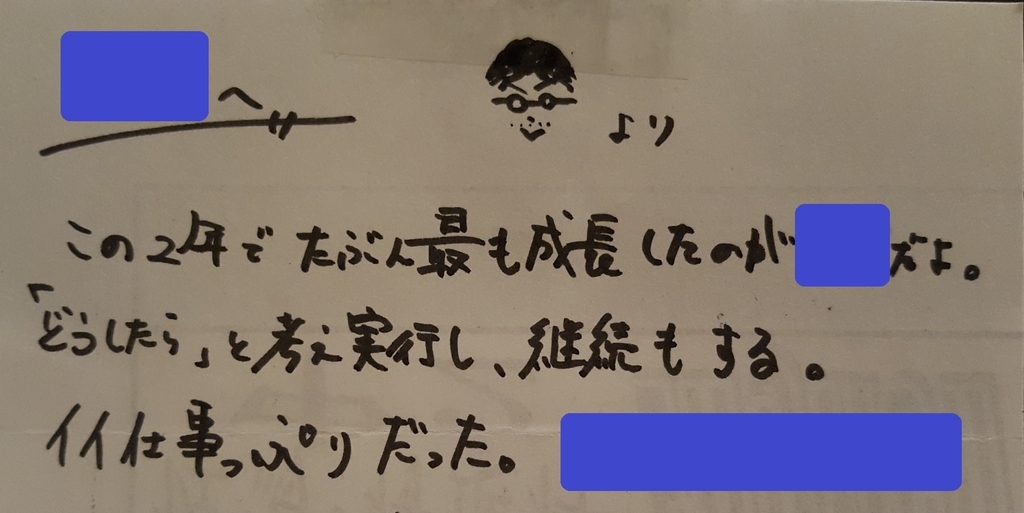 へ
より
この2年でたぶん最も成長したのが だよ。
「どうしたら」と考え実行し、継続もする。
イイ仕事っぷりだった。